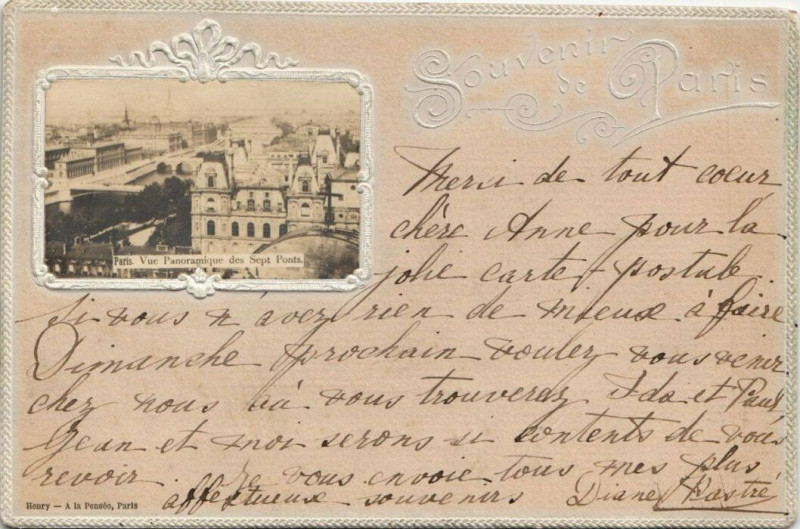 Souvenir
de Paris
Paris. Vue Panoramique des Sept Ponts.
Merci de tout coeur
chère Anne pour la
jolie carte-postale.
Si vous n'avez rien de mieux à faire
Dimanche prochain voulez vous venir
chez nous où vous trouverez Ida et Paul
Jean et moi serons si contents de vous
revoir. Je vous envoie tous mes plus
affectueux souvenirs Diane
Henry — A la Pensée, Paris